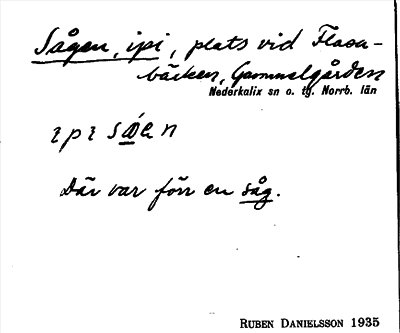 Sågen, ipi, plats vid Flasa-
bäcken, Gammelgården
Nederkalix sn o. tg. Norrb. län
Där var förr en såg.
RUBEN DANIELSSON 1935